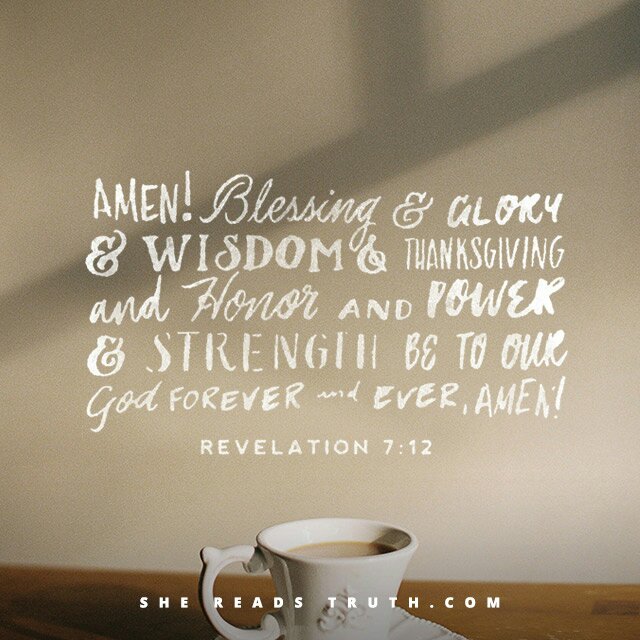 AMEN! Blessing & GLORY
& WISDOM & THANKSGIVING
and Honor AND POWER
& STRENGTH BE TO OUR
God FOREVER and EVER, AMEN!
REVELATION 7:12
SHE READS TRUTH.COM